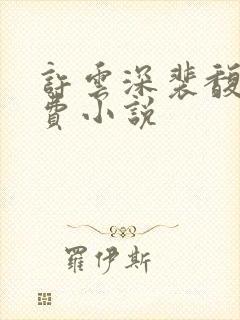 許雲深裴馥
費小說
羅伊斯